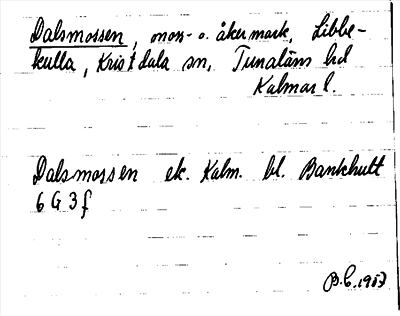 Dalsmossen, moss- o. åkermark, Libbe-
kulla, Kristdala sn, Tunaläns hd
Kalmar l.
Dalsmossen ek. Kalm. bl. Bankhult
6 G 3 f
B.C. 1953